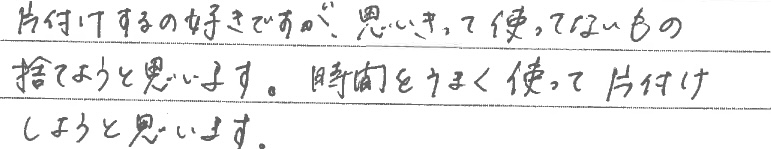 片付けするの好きですが、思いきって使ってないもの
捨てようと思います。時間をうまく使って片付け
しようと思います。